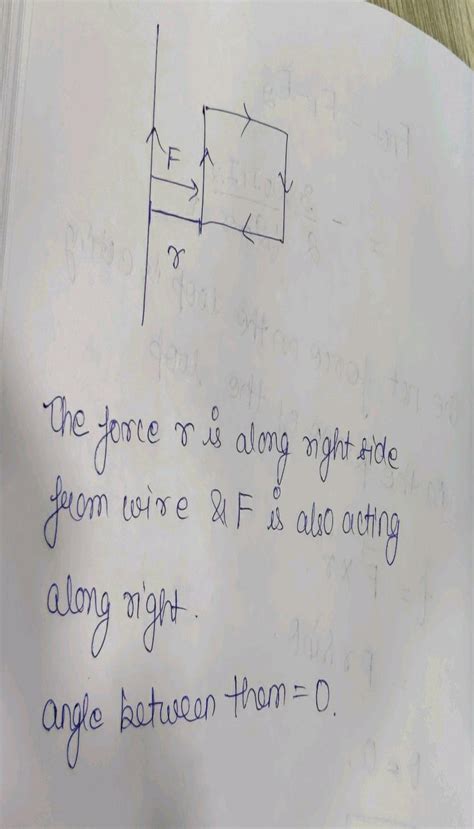 F
r
The force r is along right side
from wire & F is also acting
along right.
angle between them = 0.